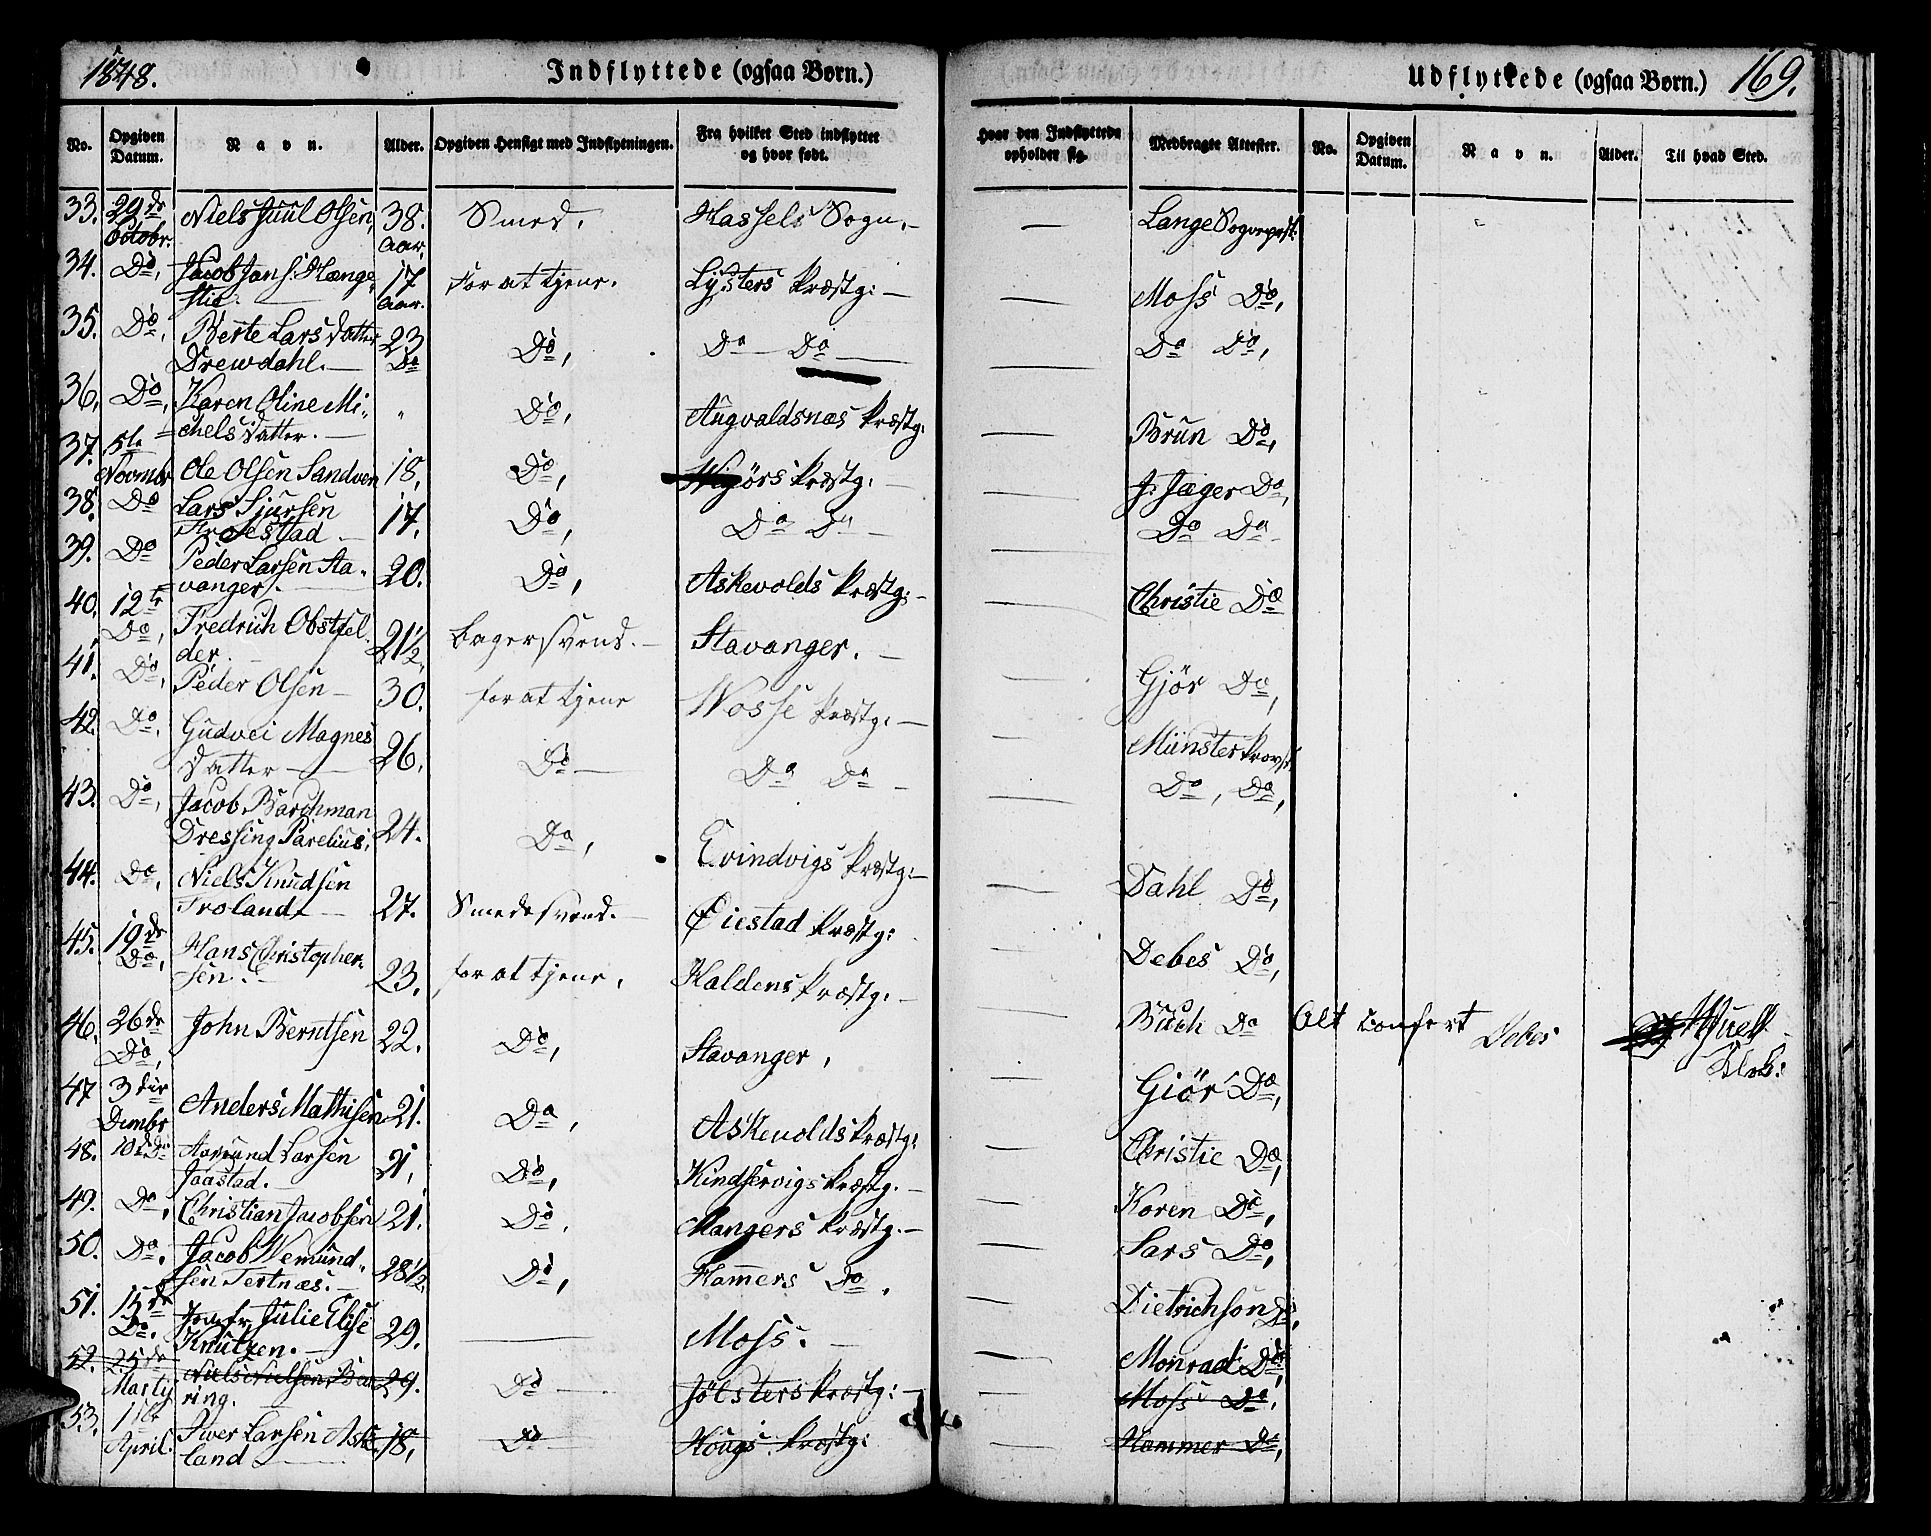 1848. Indflyttede (ogsaa Børn.)
No. Opgiven Datum. Navn. Alder. Opgiven Hensigt med Indflytningen. Fra hvilket Sted indflyttet og hvor født.
33. 29de Octobr. Niels Juul Olsen, 38. Aar, Smed. Hassels Sogn.
34. Do, Jacob Jans: Hænge-
stie. 17 Aar. For at tjene. Lysters Præstg:
35. Do, Berte Lars Datter
Drewdahl. 23 Do Do, Do Do
36, Do, Karen Oline Mi-
chels Datter. " Do, Augvaldsnæs Præstg:
37. 5te Novmbr Ole Olsen Sandven 18, Do, Præstg:
38. Do Lars Sjursen
Frolestad 17. Do, Do Do
39. Do Peder Larsen Sta-
vanger. 20. Do, Askevolds Præstg:
40. 12te Do, Fredrich Obstfel-
der. 21½ Bagersvend. Stavanger.
41. Do, Peder Olsen 30. for at tjene Wosse Præstg:
42. Do. Gudvei Magnes
Datter 26. Do Do Do
43. Do, Jacob Barchman
Dressing Parelius, 24. Do, Evindvigs Præstg:
44. Do, Niels Knudsen
Froland. 27. Smedesvend. Øiestad Præstg:
45. 19de Do, Hans Christopher-
sen. 23. for at tjene, Haldens Præstg:
46. 26de Do, John Berntsen 22. Do, Stavanger,
47 3die Dcmbr Anders Mathisen 21. Do, Askevolds Præstg:
48. 10de Do Aamund Larsen
Jaastad. 21, Do, Kindservigs Præstg.
49. Do, Christian Jacobsen 21. Do, Mangers Præstg.
50. Do. Jacob Wemund-
sen Tertnæs. 28½ Do, Hammers Do.
51. 15de Do. Jomfr Julie Elise
Knutzen. 29. Moss.
52. 25de Marty Niels Nielsen
ring. 29. Do Jølsters Præstg:
53. 11te April. Iver Larsen Ask-
land 18, Do Hougs Præstg:
Udflyttede (ogsaa Børn.) 169.
Hvor den Indflyttede opholder sig. Medbragte Attester. No. Opgiven Datum. Navn. Alder. Til hvad Sted.
Lange Sogneprest.
Moss Do,
Do Do,
Brun Do,
J: Jæger Do,
Do Do
Christie Do
Gjør Do,
Münster Provst.
Do, Do,
Dahl Do,
Debes Do,
Buch Do Alt confert Debes
Klok:
Giør Do,
Christie Do,
Koren Do,
Sars Do,
Dietrichson Do,
Monrad Do,
Moss Do.
Hammer Do,